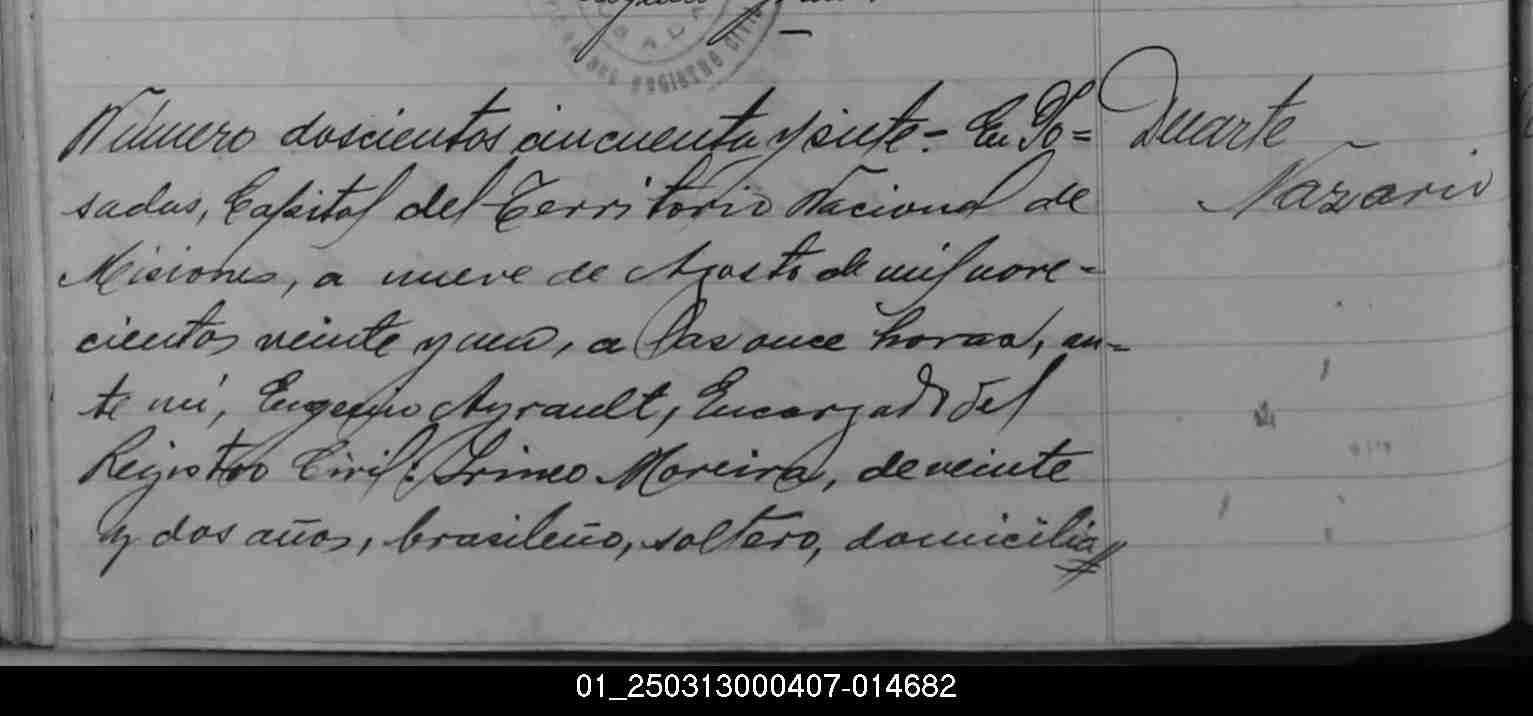 Número doscientos cincuenta y siete.- En Po=
sadas, Capital del Territorio Nacional de
Misiones, a nueve de Agosto de mil nove-
cientos veinte y uno, a las once horas, an-
te mí, Eugenio Ayrault, Encargado del
Registro Civil: Irineo Moreira, de veinte
y dos años, brasileño, soltero, domicilia
Duarte
Nazario
01_250313000407-014682